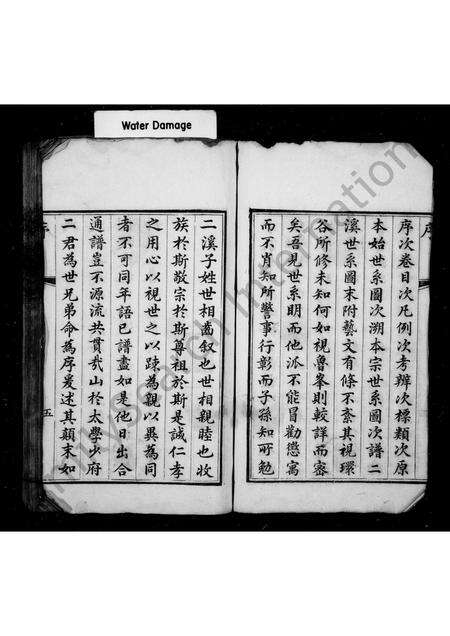 Water Damage
序
序次卷目次凡例次考辨次標類次原
本始世系圖次溯本宗世系圖次譜二
溪世系圖末附藝文有條不紊其視環
谷所修未知何如視魯峯則較詳而密
矣吾見世系明而他派不能冒勸懲寓
而不肖知所警事行彰而子孫知所勉
二溪子姓世相齒叙也世相親睦也收
族於斯敬宗於斯尊祖於斯是誠仁孝
之用心以視世之以踈為親以異為同
者不可同年語已譜盡如是他日出合
通譜豈不源流共貫哉山於太學少府
二君為世兄弟命為序爰述其顛末如
五